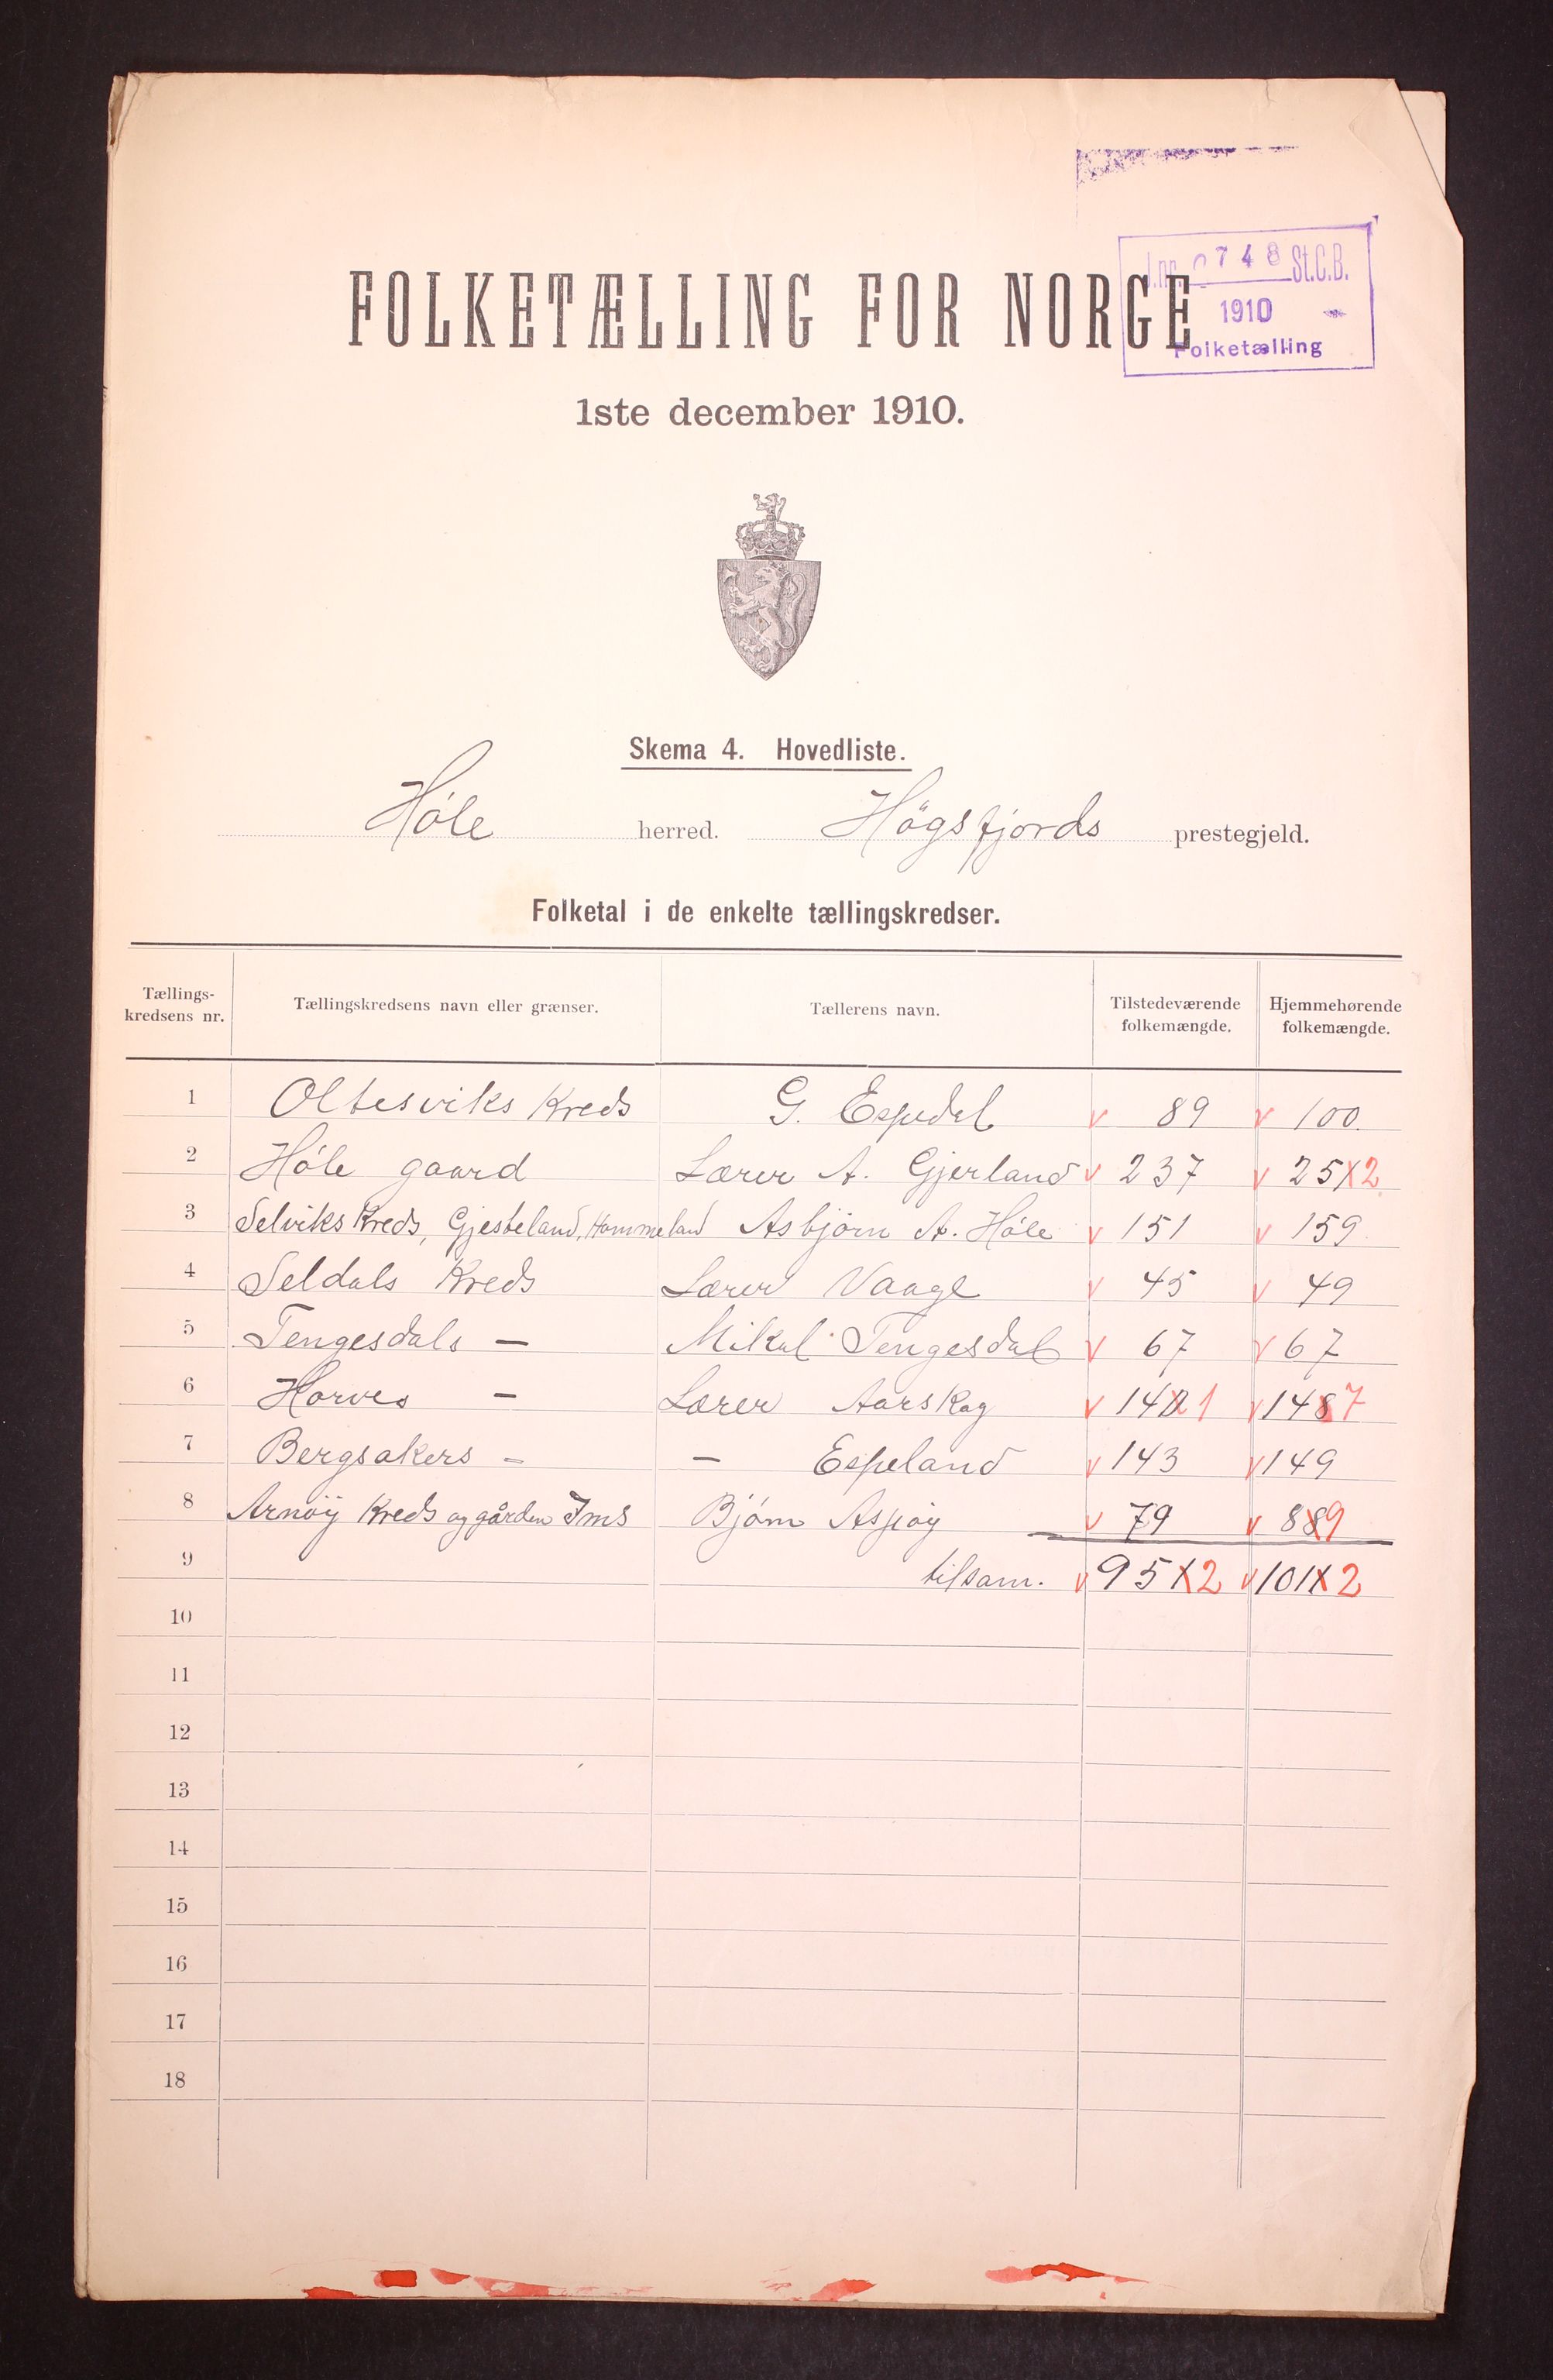 J.nr. 0748 St.C.B.
1910
Folketælling
FOLKETÆLLING FOR NORGE
1ste december 1910.
Skema 4. Hovedliste.
Höle herred. Högsfjords prestegjeld.
Folketal i de enkelte tællingskredser.
Tællings-kredsens nr. Tællingskredsens navn eller grænser. Tællerens navn. Tilstedeværende folkemængde. Hjemmehørende folkemængde.
1 Oltesviks Kreds G. Espedal v 89 v 100.
2 Höle gaard Lærer A. Gjerland v 237 v 251 2
3 Selviks Kreds, Gjesteland, Hommeland Asbjörn A. Höle v 151 v 159
4 Seldals Kreds Lærer Vaage v 45 v 49
5 Tengesdals — Mikal Tengesdal v 67 v 67
6 Horves — Lærer Aarskog v 142 1 v 148 7
7 Bergsakers — — Espeland v 143 v 149
8 Arnöy Kreds og gården Ims Björn Aspöy v 79 v 88 9
9 tilsam. v 951 2 v 1011 2
10
11
12
13
14
15
16
17
18